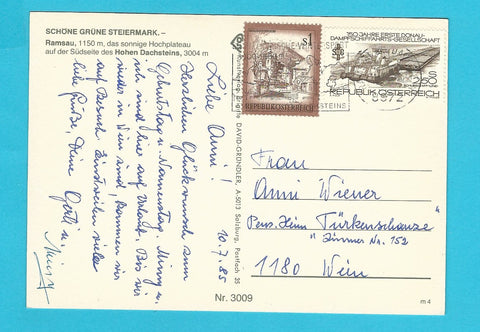 SCHÖNE GRÜNE STEIERMARK. –
Ramsau, 1150 m, das sonnige Hochplateau
auf der Südseite des Hohen Dachsteins, 3004 m
10.7.85
Liebe Anni!
Herzlichen Glückwunsch zum
Geburtstag u. Namenstag. Minny u.
ich sind hier auf Urlaub. Bis wir
wieder in Wien sind, kommen wir
auf Besuch. Einstweilen viele
liebe Grüße, Deine Gerti u.
S1
REPUBLIK ÖSTERREICH
350 JAHRE ERSTE DONAU-
DAMPFSCHIFFAHRTS-GESELLSCHAFT
REPUBLIK ÖSTERREICH
8972
DAVID-GRÜNDLER, A-5013 Salzburg, Postfach 35
Frau
Anni Wiener
Pens. Heim Türkenschanze
" Zimmer Nr. 152
1180 Wien
Nr. 3009
m 4